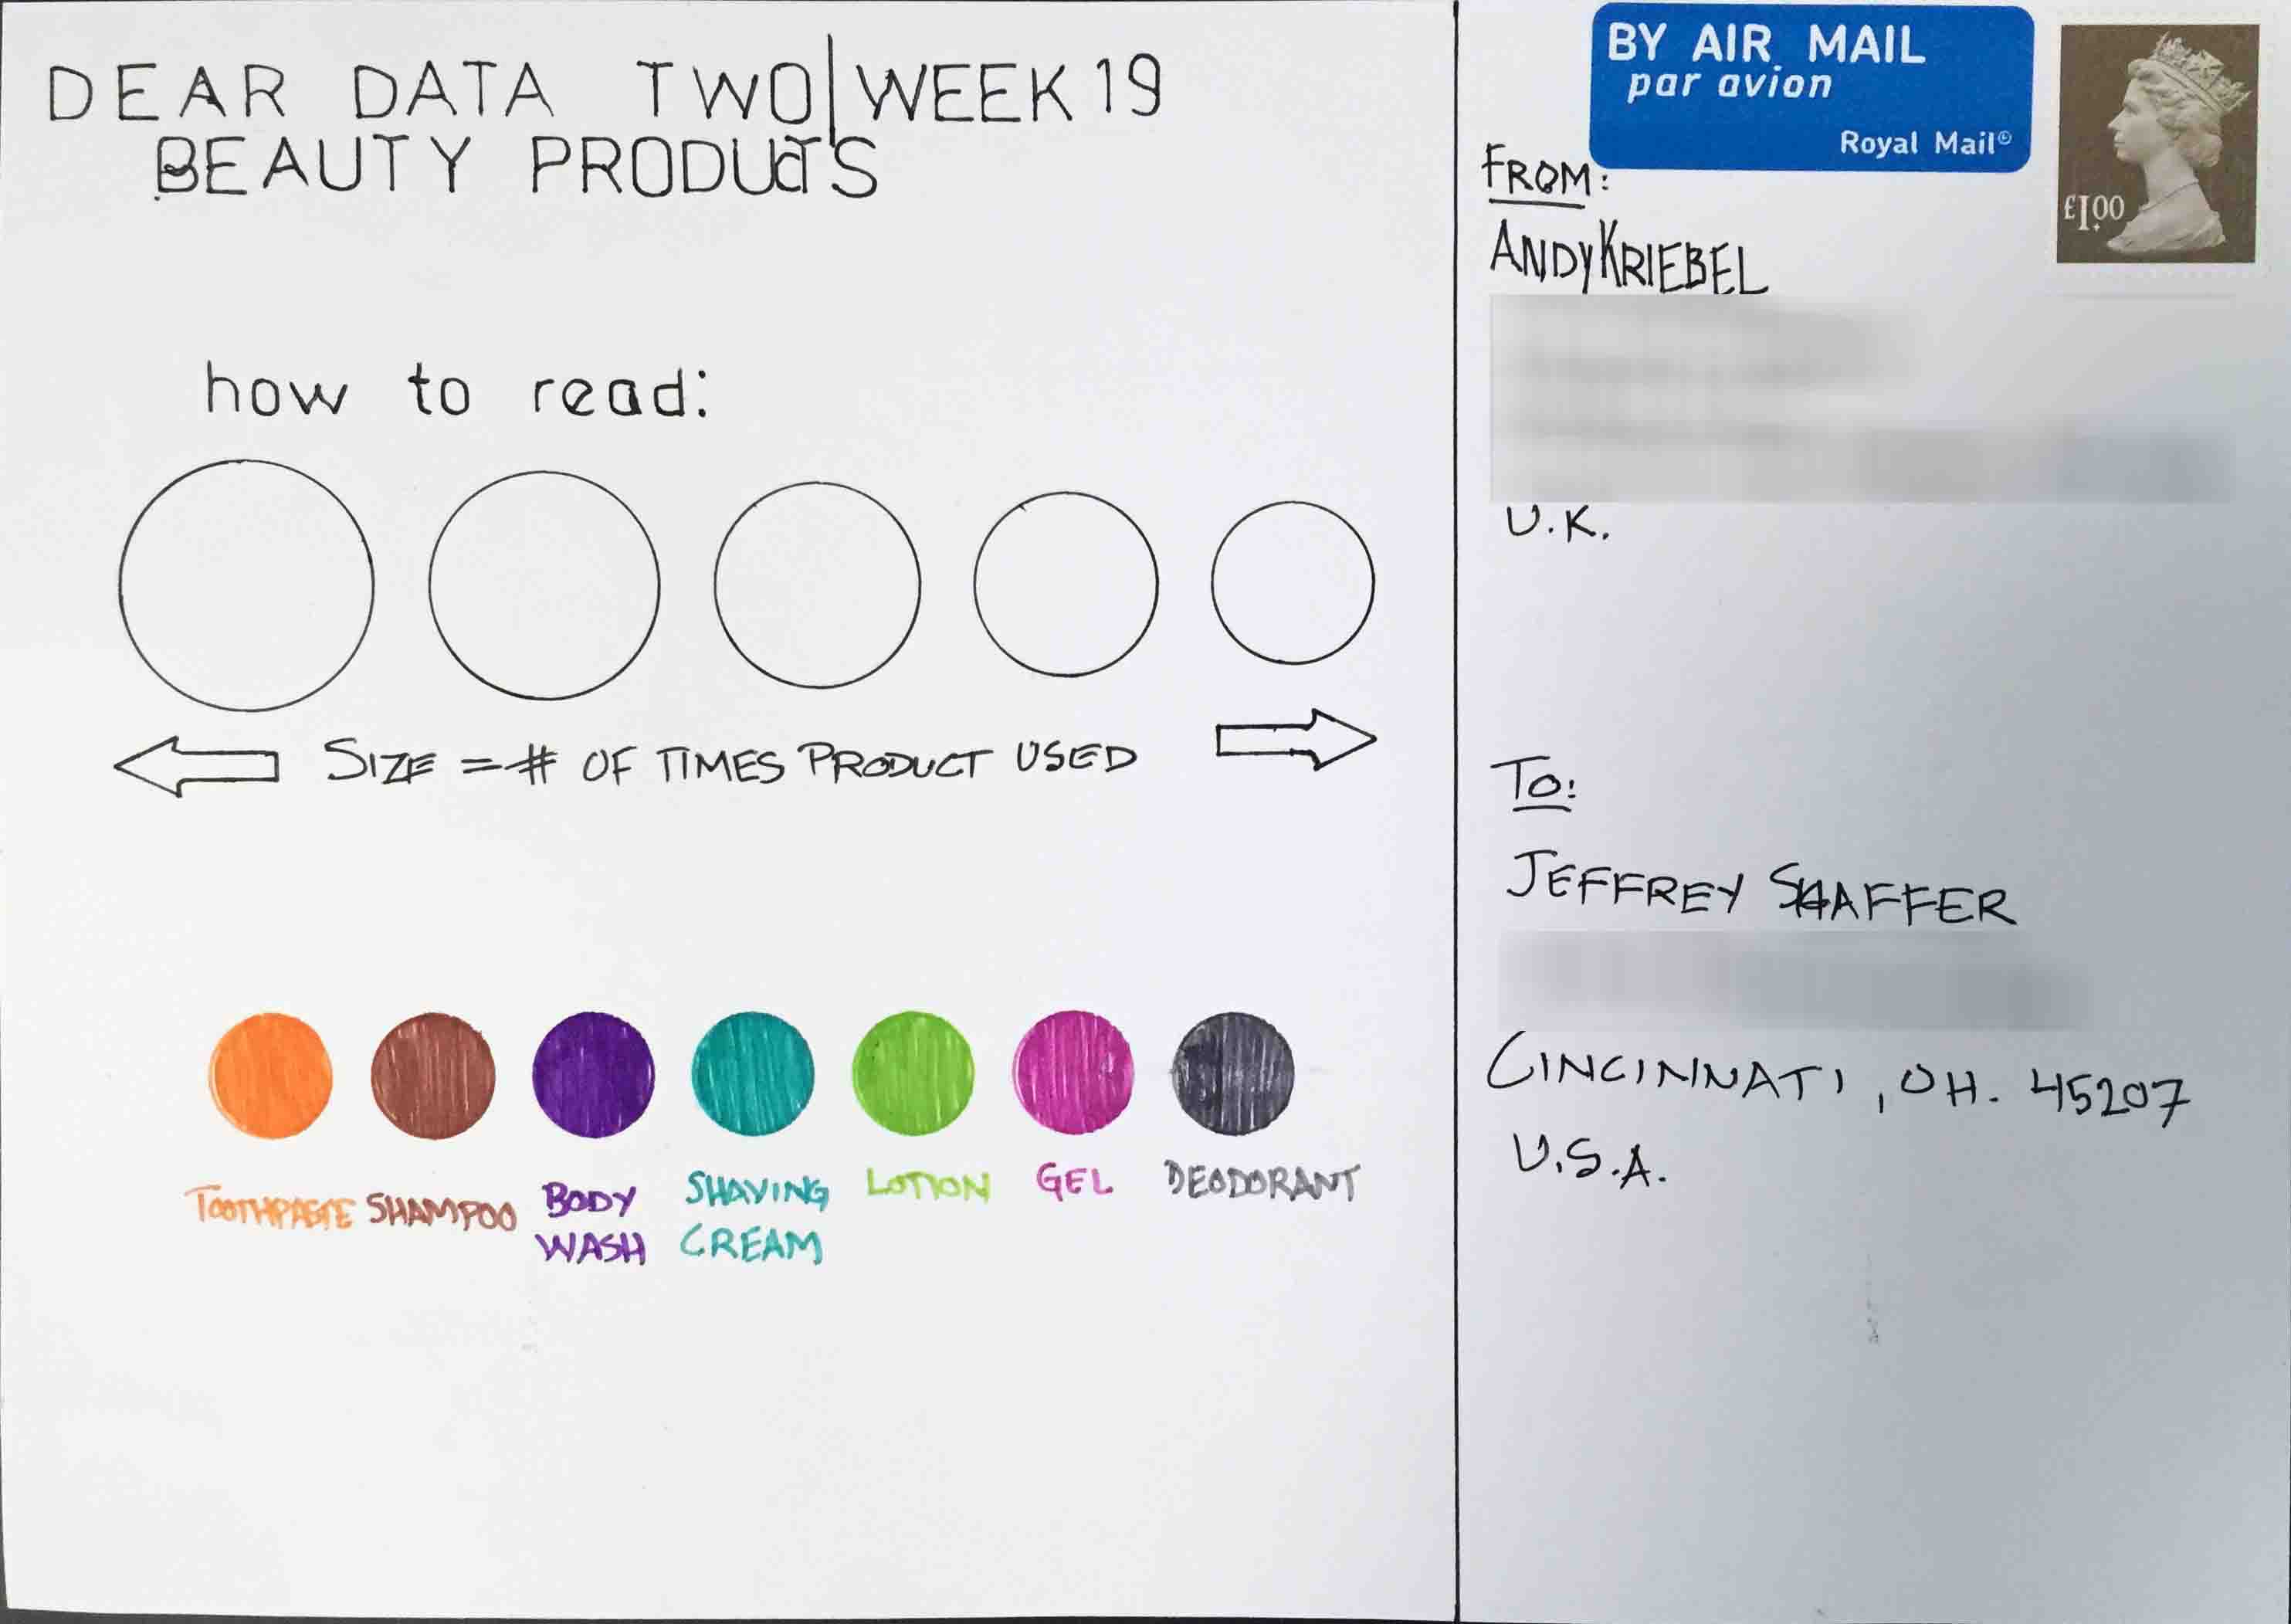 DEAR DATA TWO|WEEK 19
BEAUTY PRODUCTS
how to read:
SIZE = # OF TIMES PRODUCT USED
TOOTHPASTE SHAMPOO BODY WASH SHAVING CREAM LOTION GEL DEODORANT
BY AIR MAIL
par avion
Royal Mail©
£1.00
FROM:
ANDY KRIEBEL
U.K.
TO:
JEFFREY SHAFFER
CINCINNATI, OH. 45207
U.S.A.